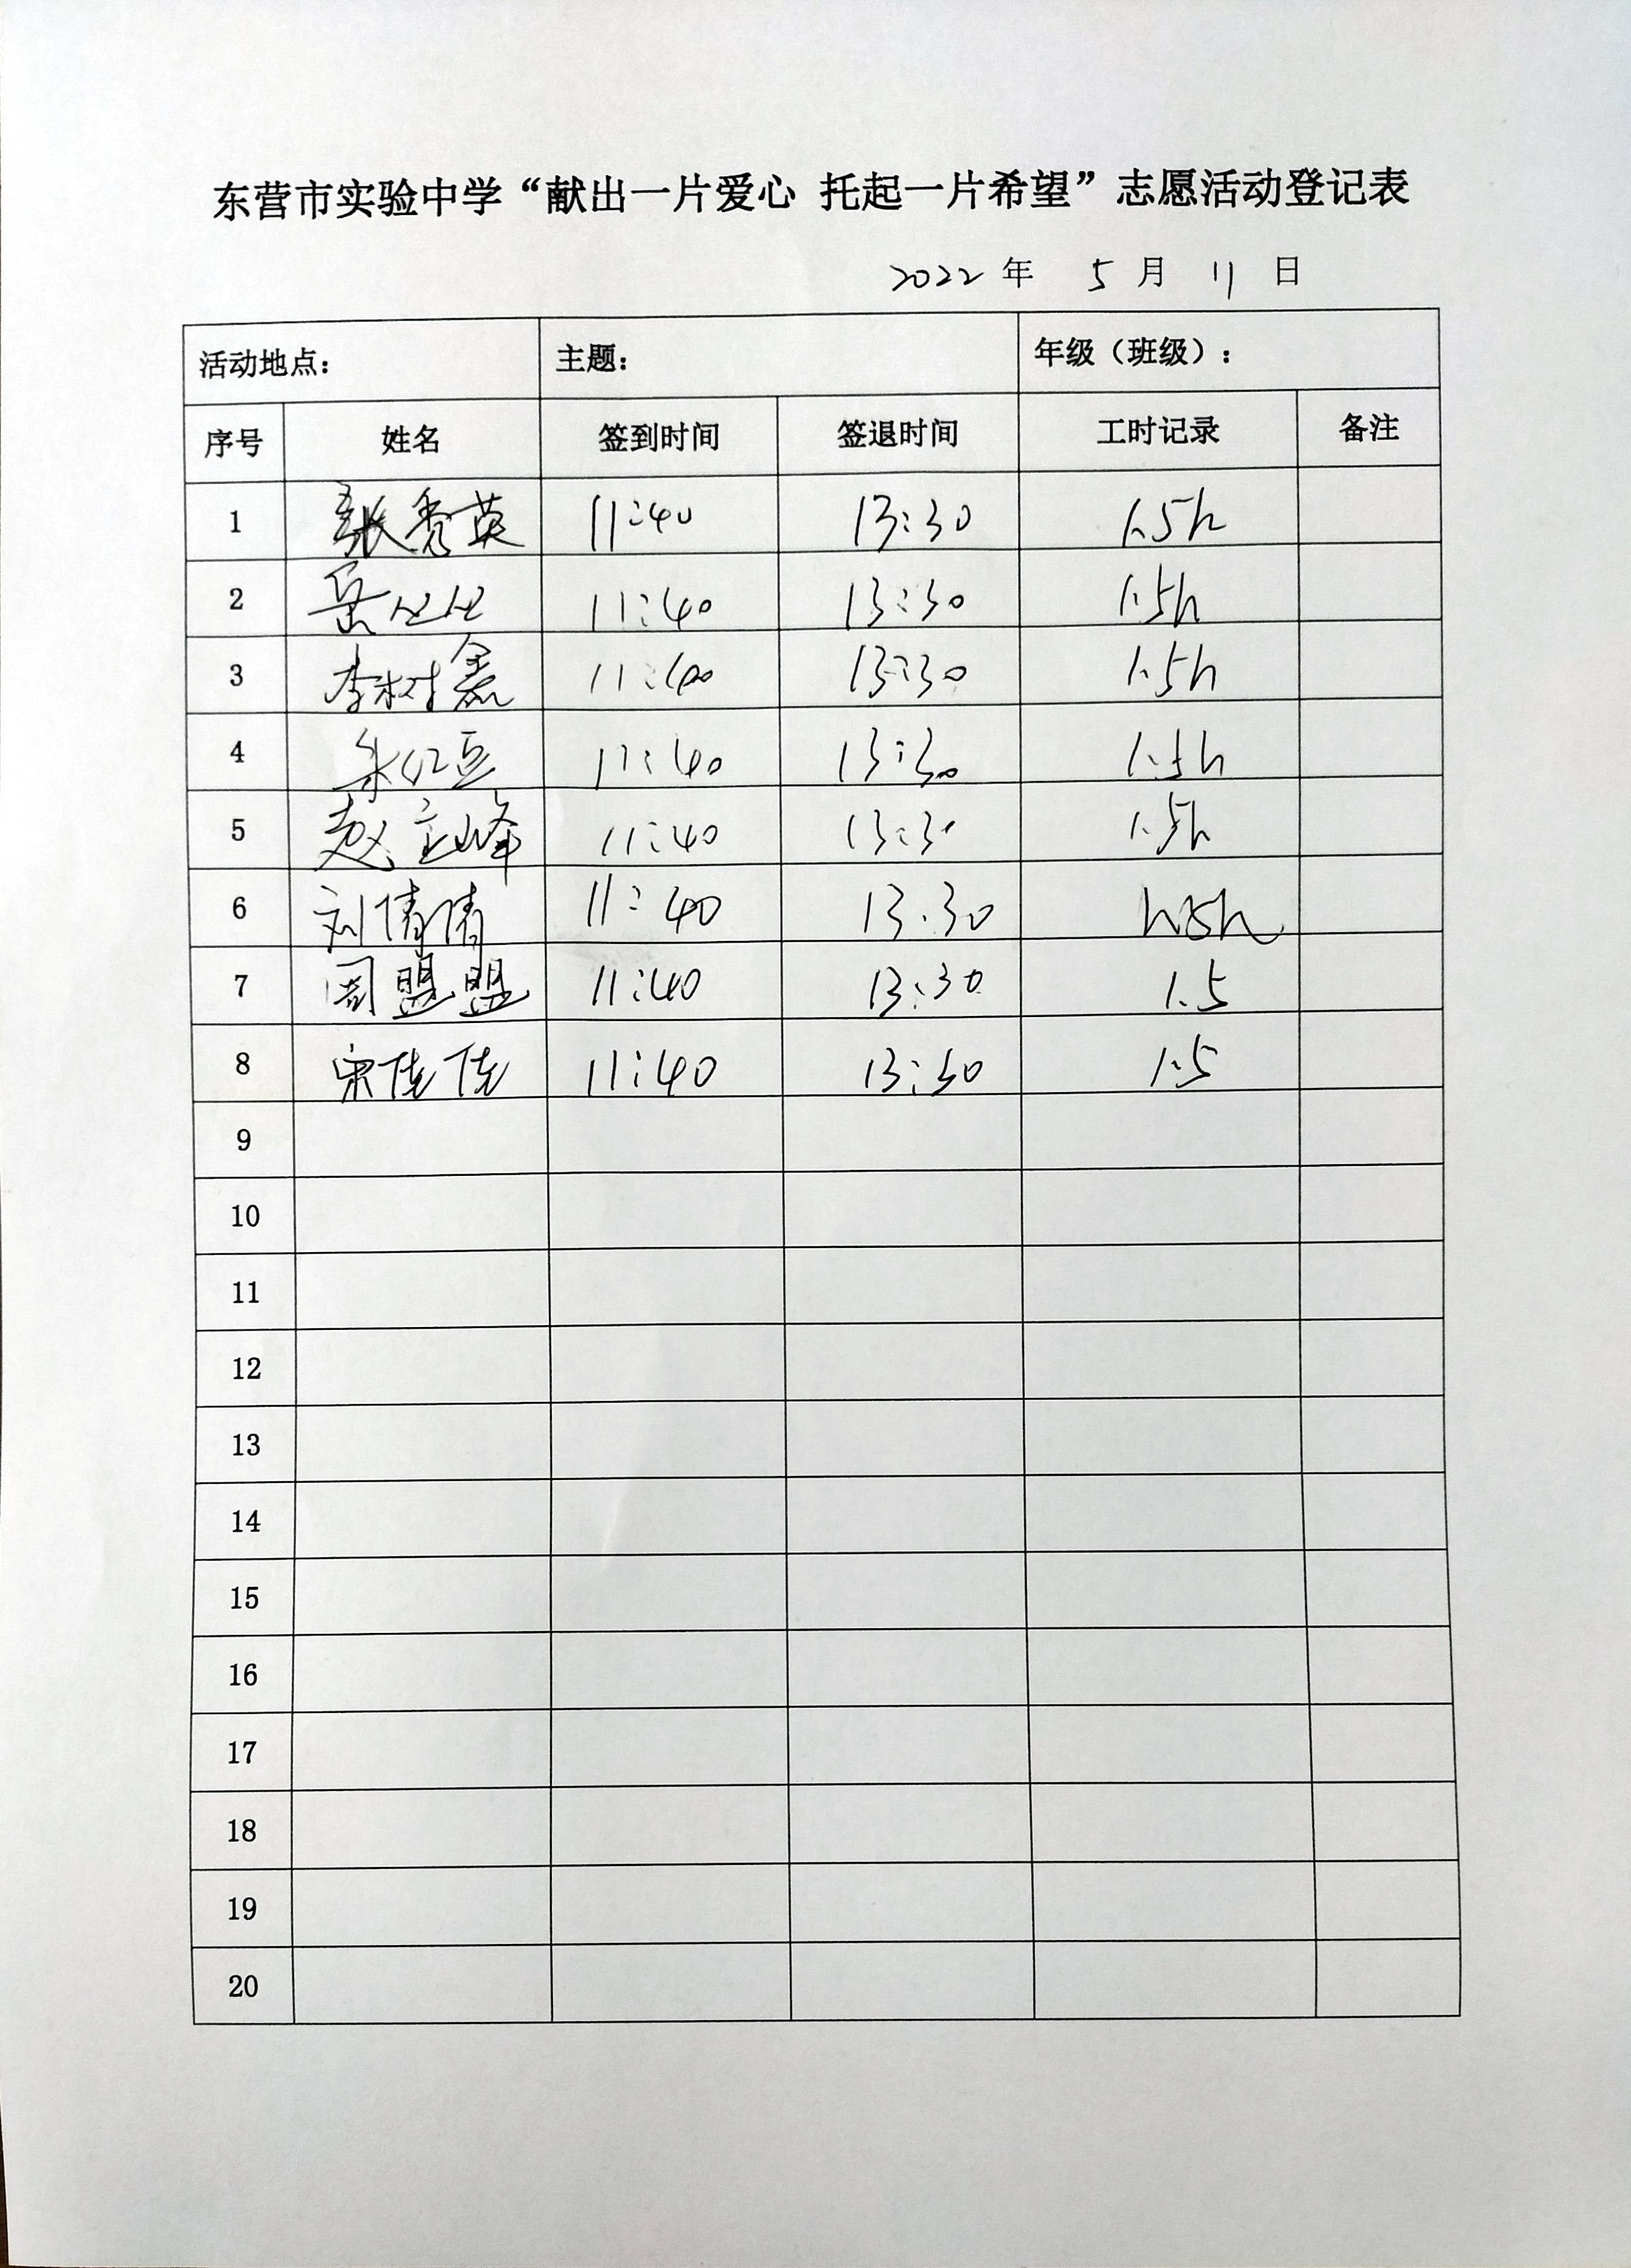 东营市实验中学“献出一片爱心 托起一片希望”志愿活动登记表
2022 年 5 月 11 日
活动地点： 主题： 年级（班级）：
序号 姓名 签到时间 签退时间 工时记录 备注
1 张秀英 11:40 13:30 1.5h
2 岳 11:40 13:30 1.5h
3 李树鑫 11:40 13:30 1.5h
4 朱红豆 11:40 13:30 1.5h
5 赵立峰 11:40 13:30 1.5h
6 刘倩倩 11:40 13.30 1.5h
7 周盟盟 11:40 13:30 1.5
8 宋佳佳 11:40 13:30 1.5
9
10
11
12
13
14
15
16
17
18
19
20